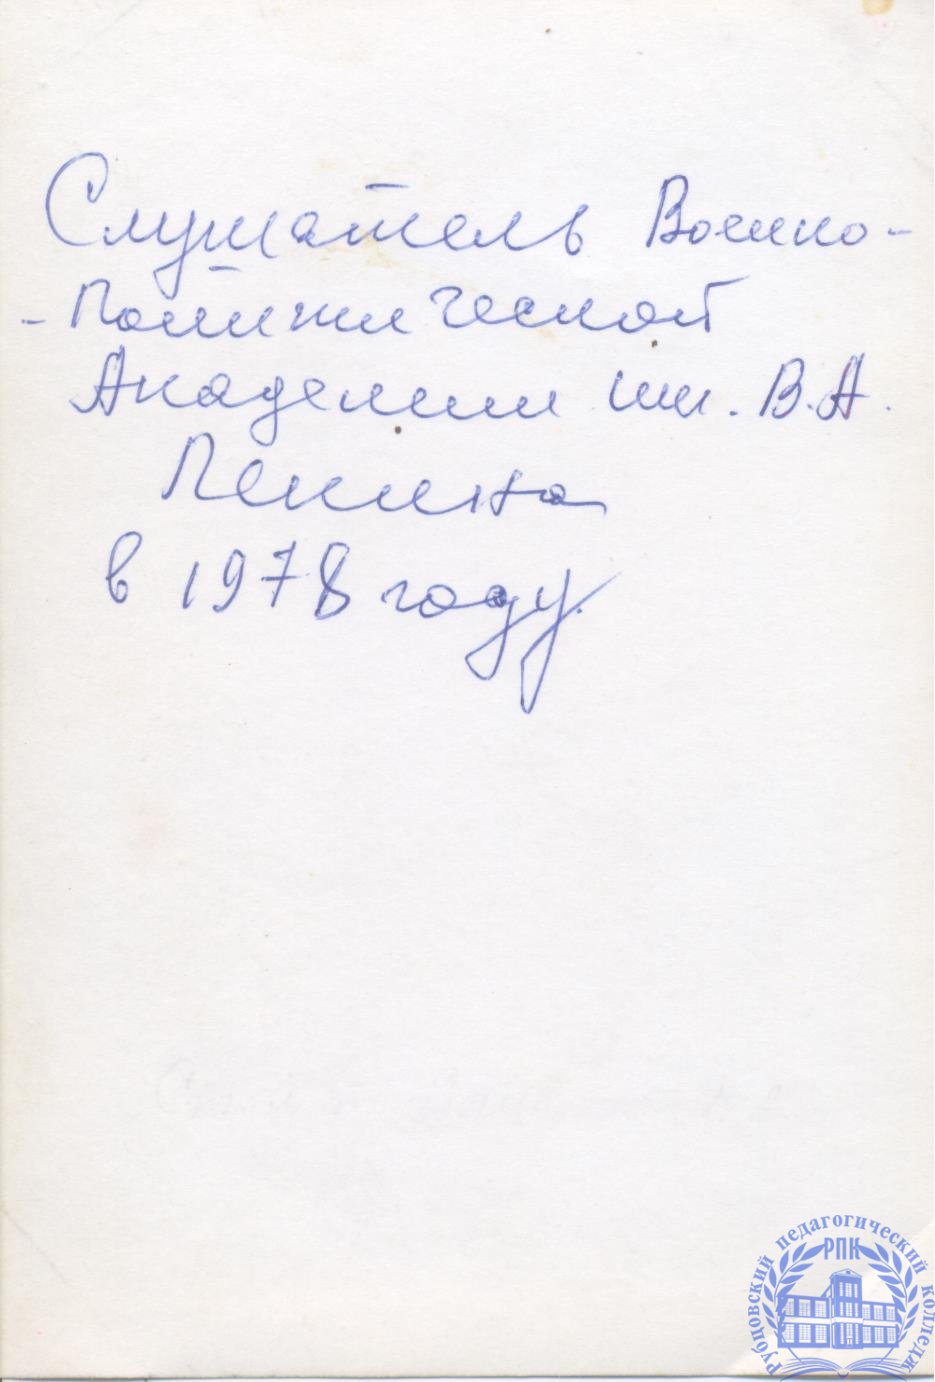 Слушатель Военно-
-Политической
Академии им. В.А.
Ленина
в 1978 году.
Рубцовский педагогический колледж
РПК